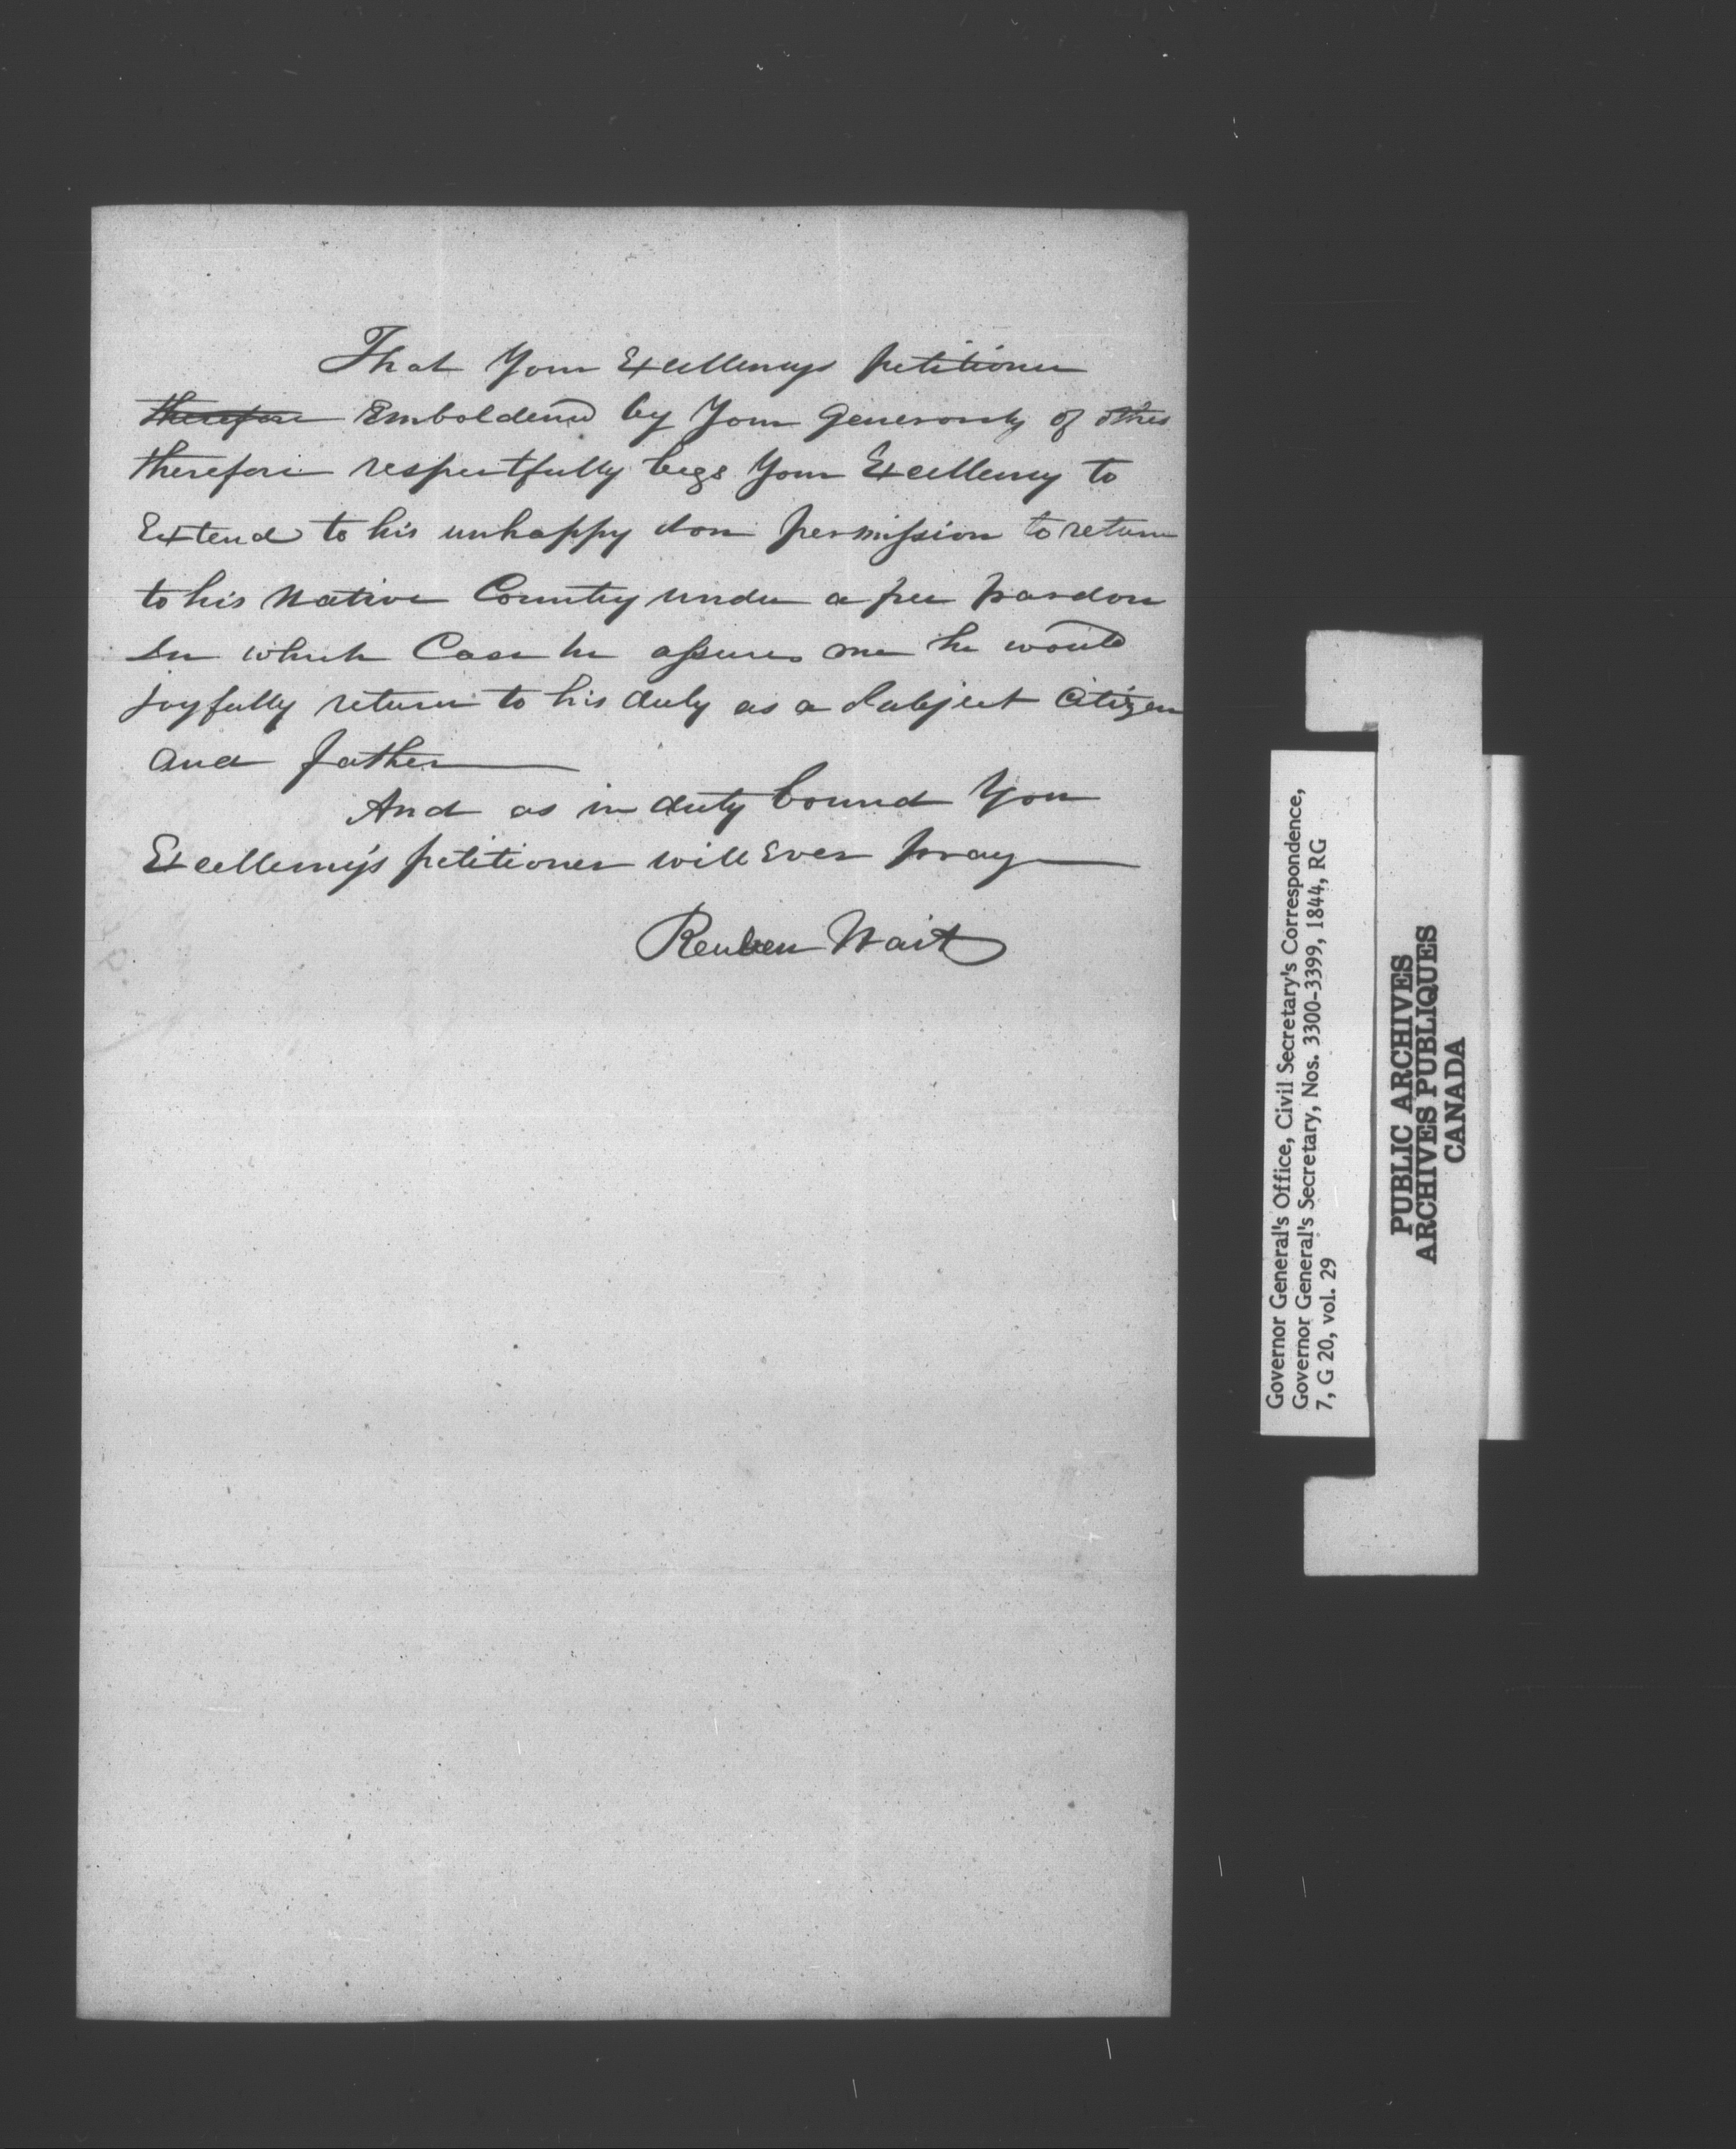 That Your Excellencys petitioner
therefore Emboldened by Your Generosity of others
therefore respectfully begs Your Excellency to
Extend to his unhappy son permission to return
to his Native Country under a free pardon
In which Case he assures me he would
joyfully return to his duty as a Subject Citizen
and father
And as in duty bound Your
Excellency's petitioner will Ever pray
Reuben Wait
Governor General's Office, Civil Secretary's Correspondence,
Governor General's Secretary, Nos. 3300-3399, 1844, RG
7, G 20, vol. 29
PUBLIC ARCHIVES
ARCHIVES PUBLIQUES
CANADA